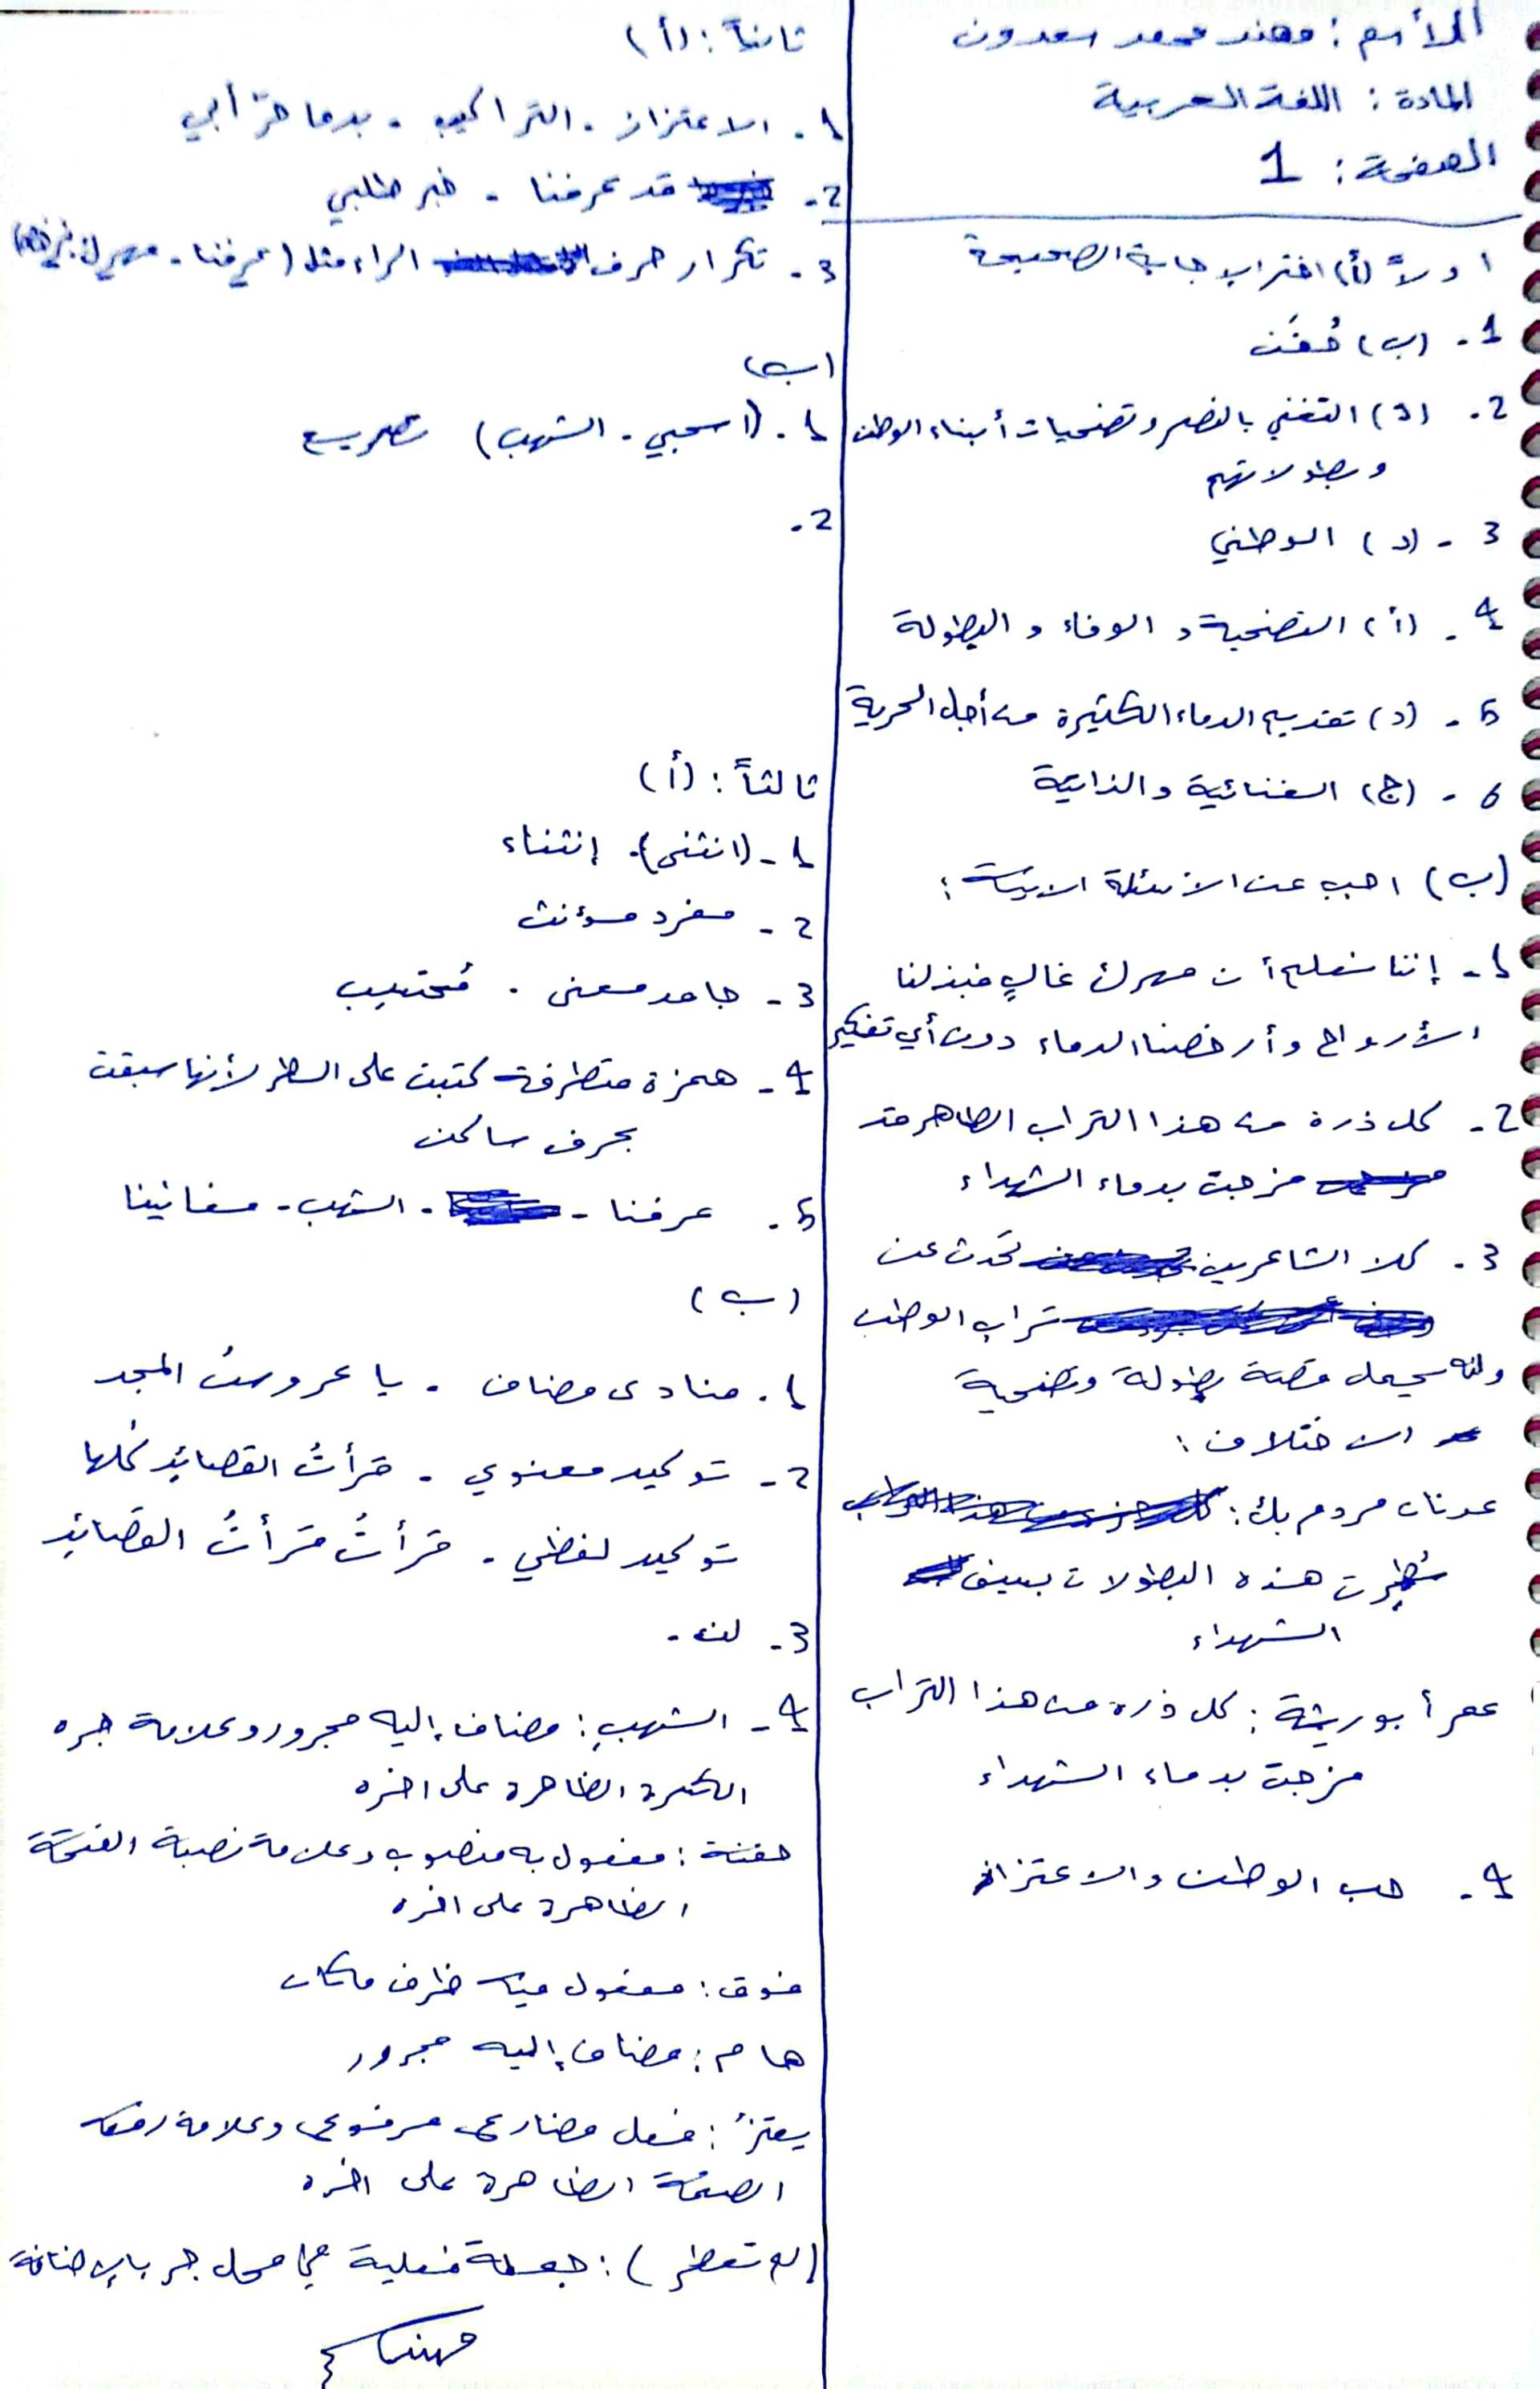 الأسم : مهند محمد سعدون
المادة : اللغة العربية
الصفحة : 1
اولاً (أ) اختر الإجابة الصحيحة
1 - (ب)
2 - (د) التغني بالنصر وتضحيات أبناء الوطن
وبطولاتهم
3 - (د) الوطني
4 - (أ) التضحية و الوفاء و البطولة
5 - (د) تقديم الدماء الكثيرة من أجل الحرية
6 - (ج) الغنائية والذاتية
(ب) اجب عن الأسئلة الاتية :
1 - إننا نعلم أن مهرك غالٍ فبذلنا
الأرواح وأرخصنا الدماء دون أي تفكير
2 - كل ذرة من هذا التراب الطاهر قد
مزجت بدماء الشهداء
3 - كلا الشاعرين تحدث عن
تراب الوطن
وانه يحمل قصة بطولة وتضحية
الاختلاف :
عدنان مردم بك :
سُطِرت هذه البطولات بسيف
الشهداء
عمر أبو ريشة : كل ذرة من هذا التراب
مزجت بدماء الشهداء
4 - حب الوطن والاعتزاز
ثانياً : (أ)
1 - الاعتزاز - التراكيب - بدما حرّ أبي
2 - قد عرفنا - خبر طلبي
3 - تكرار حرف الراء مثل (عرفنا - مهرك
(ب)
1 - (اسحبي - الشهب) تصريع
2 -
ثالثاً : (أ)
1 - (انثنى) - إنثناء
2 - مفرد مؤنث
3 - جامد معنى -
4 - همزة متطرفة كتبت على السطر لأنها سبقت
بحرف ساكن
5 - عرفنا - الشهب - مغانينا
(ب)
1 - منادى مضاف - يا عروسَ المجد
2 - توكيد معنوي - قرأتُ القصائدِ كلها
توكيد لفظي - قرأتُ قرأتُ القصائدِ
3 - لن -
4 - الشهبِ : مضاف إليه مجرور وعلامة جره
الكسرة الظاهرة على اخره
حفنة : مفعول به منصوب وعلامة نصبة الفتحة
الظاهرة على اخره
فوق : مفعول فيه ظرف مكان
هام : مضاف إليه مجرور
يعتزُ : فعل مضارع مرفوع وعلامة رفعه
الضمة الظاهرة على اخره
(لم تعطر) : جملة فعلية في محل جر بالإضافة
مهند